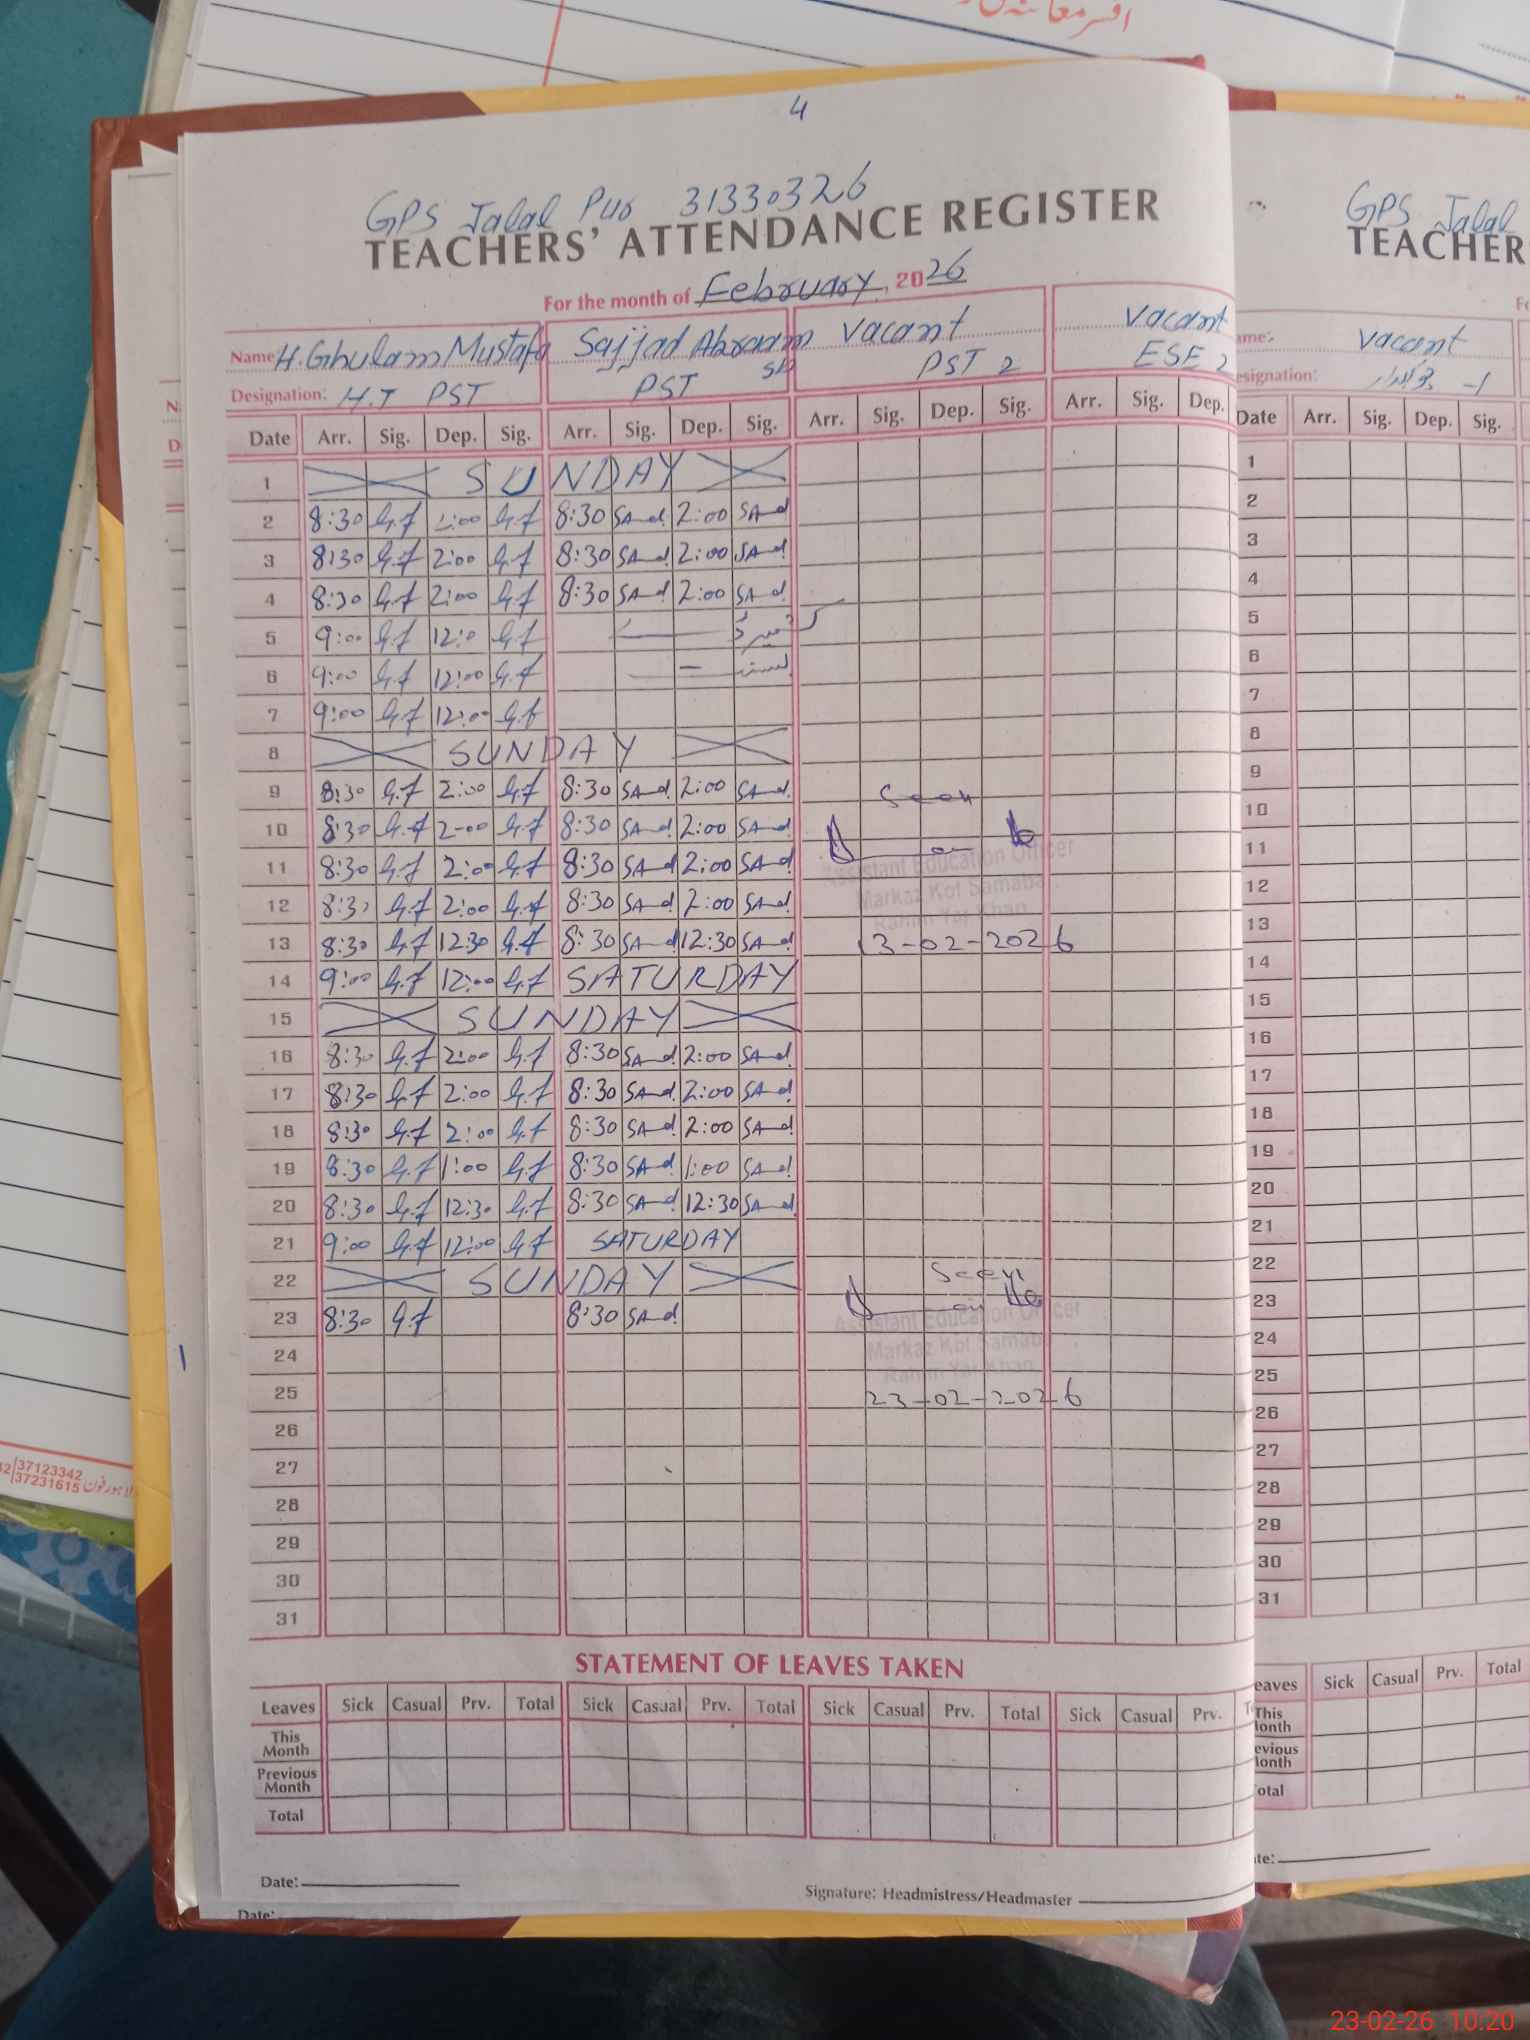 افسر معائنہ
4
GPS Jalal Pur 31330326
TEACHERS' ATTENDANCE REGISTER
For the month of February, 2026
Name H. Ghulam Mustafa Sajjad Vacant Vacant
Designation: H.T PST PST PST 2 ESE 2
Date Arr. Sig. Dep. Sig. Arr. Sig. Dep. Sig. Arr. Sig. Dep. Sig. Arr. Sig. Dep.
1 SUNDAY
2 8:30 G.f :00 G.f 8:30 SAd 2:00 SAd
3 8:30 G.f 2:00 G.f 8:30 SAd 2:00 SAd
4 8:30 G.f 2:00 G.f 8:30 SAd 2:00 SAd
5 9:00 G.f 12:0 G.f
6 9:00 G.f 12:00 G.f
7 9:00 G.f 12:00 G.f
8 SUNDAY
9 8:30 G.f 2:00 G.f 8:30 SAd 2:00 SAd Seen
10 8:30 G.f 2-00 G.f 8:30 SAd 2:00 SAd
11 8:30 G.f 2:00 G.f 8:30 SAd 2:00 SAd Assistant Education Officer
12 8:30 G.f 2:00 G.f 8:30 SAd 2:00 SAd Markaz Kot Samaba
Rahim Yar Khan
13 8:30 G.f 12:30 G.f 8:30 SAd 12:30 SAd 13-02-2026
14 9:00 G.f 12:00 G.f SATURDAY
15 SUNDAY
16 8:30 G.f 2:00 G.f 8:30 SAd 2:00 SAd
17 8:30 G.f 2:00 G.f 8:30 SAd 2:00 SAd
18 8:30 G.f 2:00 G.f 8:30 SAd 2:00 SAd
19 8:30 G.f 1:00 G.f 8:30 SAd 1:00 SAd
20 8:30 G.f 12:30 G.f 8:30 SAd 12:30 SAd
21 9:00 G.f 12:00 G.f SATURDAY
22 SUNDAY Seen
23 8:30 G.f 8:30 SAd Assistant Education Officer
24 Markaz Kot Samaba
Rahim Yar Khan
25 23-02-2026
26
27
28
29
30
31
STATEMENT OF LEAVES TAKEN
Leaves Sick Casual Prv. Total Sick Casual Prv. Total Sick Casual Prv. Total Sick Casual Prv.
This Month
Previous Month
Total
Date:
Signature: Headmistress/Headmaster
Date:
GPS Jalal
TEACHER
ame: Vacant
esignation: چوکیدار -1
Date Arr. Sig. Dep. Sig.
1
2
3
4
5
6
7
8
9
10
11
12
13
14
15
16
17
18
19
20
21
22
23
24
25
26
27
28
29
30
31
eaves Sick Casual Prv. Total
This
onth
evious
onth
otal
te:
37123342
37231615
23-02-26 10:20